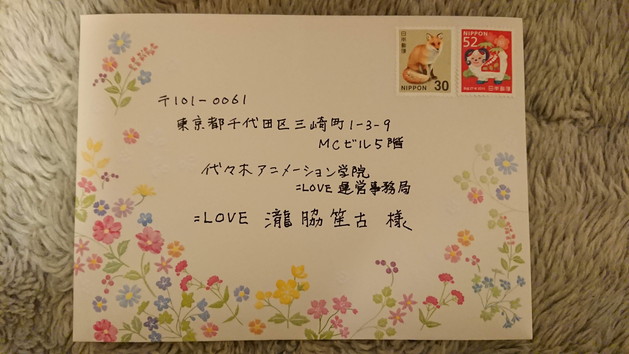 日本郵便
NIPPON 30
NIPPON
52
日本郵便
〒101-0061
東京都千代田区三崎町1-3-9
MCビル5階
代々木アニメーション学院
=LOVE 運営事務局
=LOVE 瀧脇笙古 様